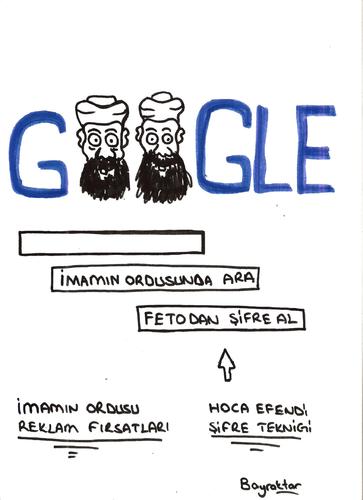 GOOGLE
İMAMIN ORDUSUNDA ARA
FETODAN ŞİFRE AL
İMAMIN ORDUSU
REKLAM FIRSATLARI
HOCA EFENDİ
ŞİFRE TEKNİGİ
Bayraktar